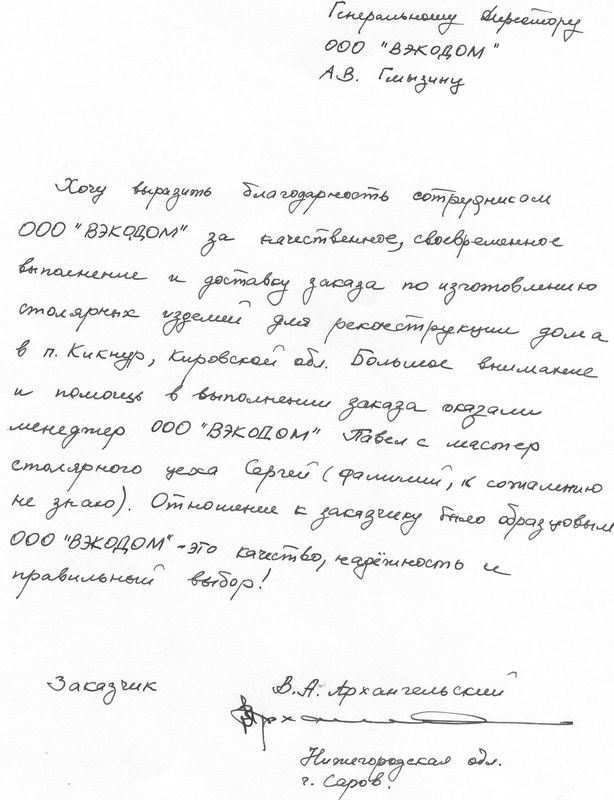 Генеральному директору
ООО "ВЭКОДОМ"
А.В. Гмызину
Хочу выразить благодарность сотрудникам
ООО "ВЭКОДОМ" за качественное, своевременное
выполнение и доставку заказа по изготовлению
столярных изделий для реконструкции дома
в п. Кикнур, Кировской обл. Большое внимание
и помощь в выполнении заказа оказали
менеджер ООО "ВЭКОДОМ" Павел и мастер
столярного цеха Сергей (фамилий, к сожалению
не знаю). Отношение к заказчику было образцовым
ООО "ВЭКОДОМ" - это качество, надёжность и
правильный выбор!
Заказчик
В.А. Архангельский
Нижегородская обл.
г. Саров.